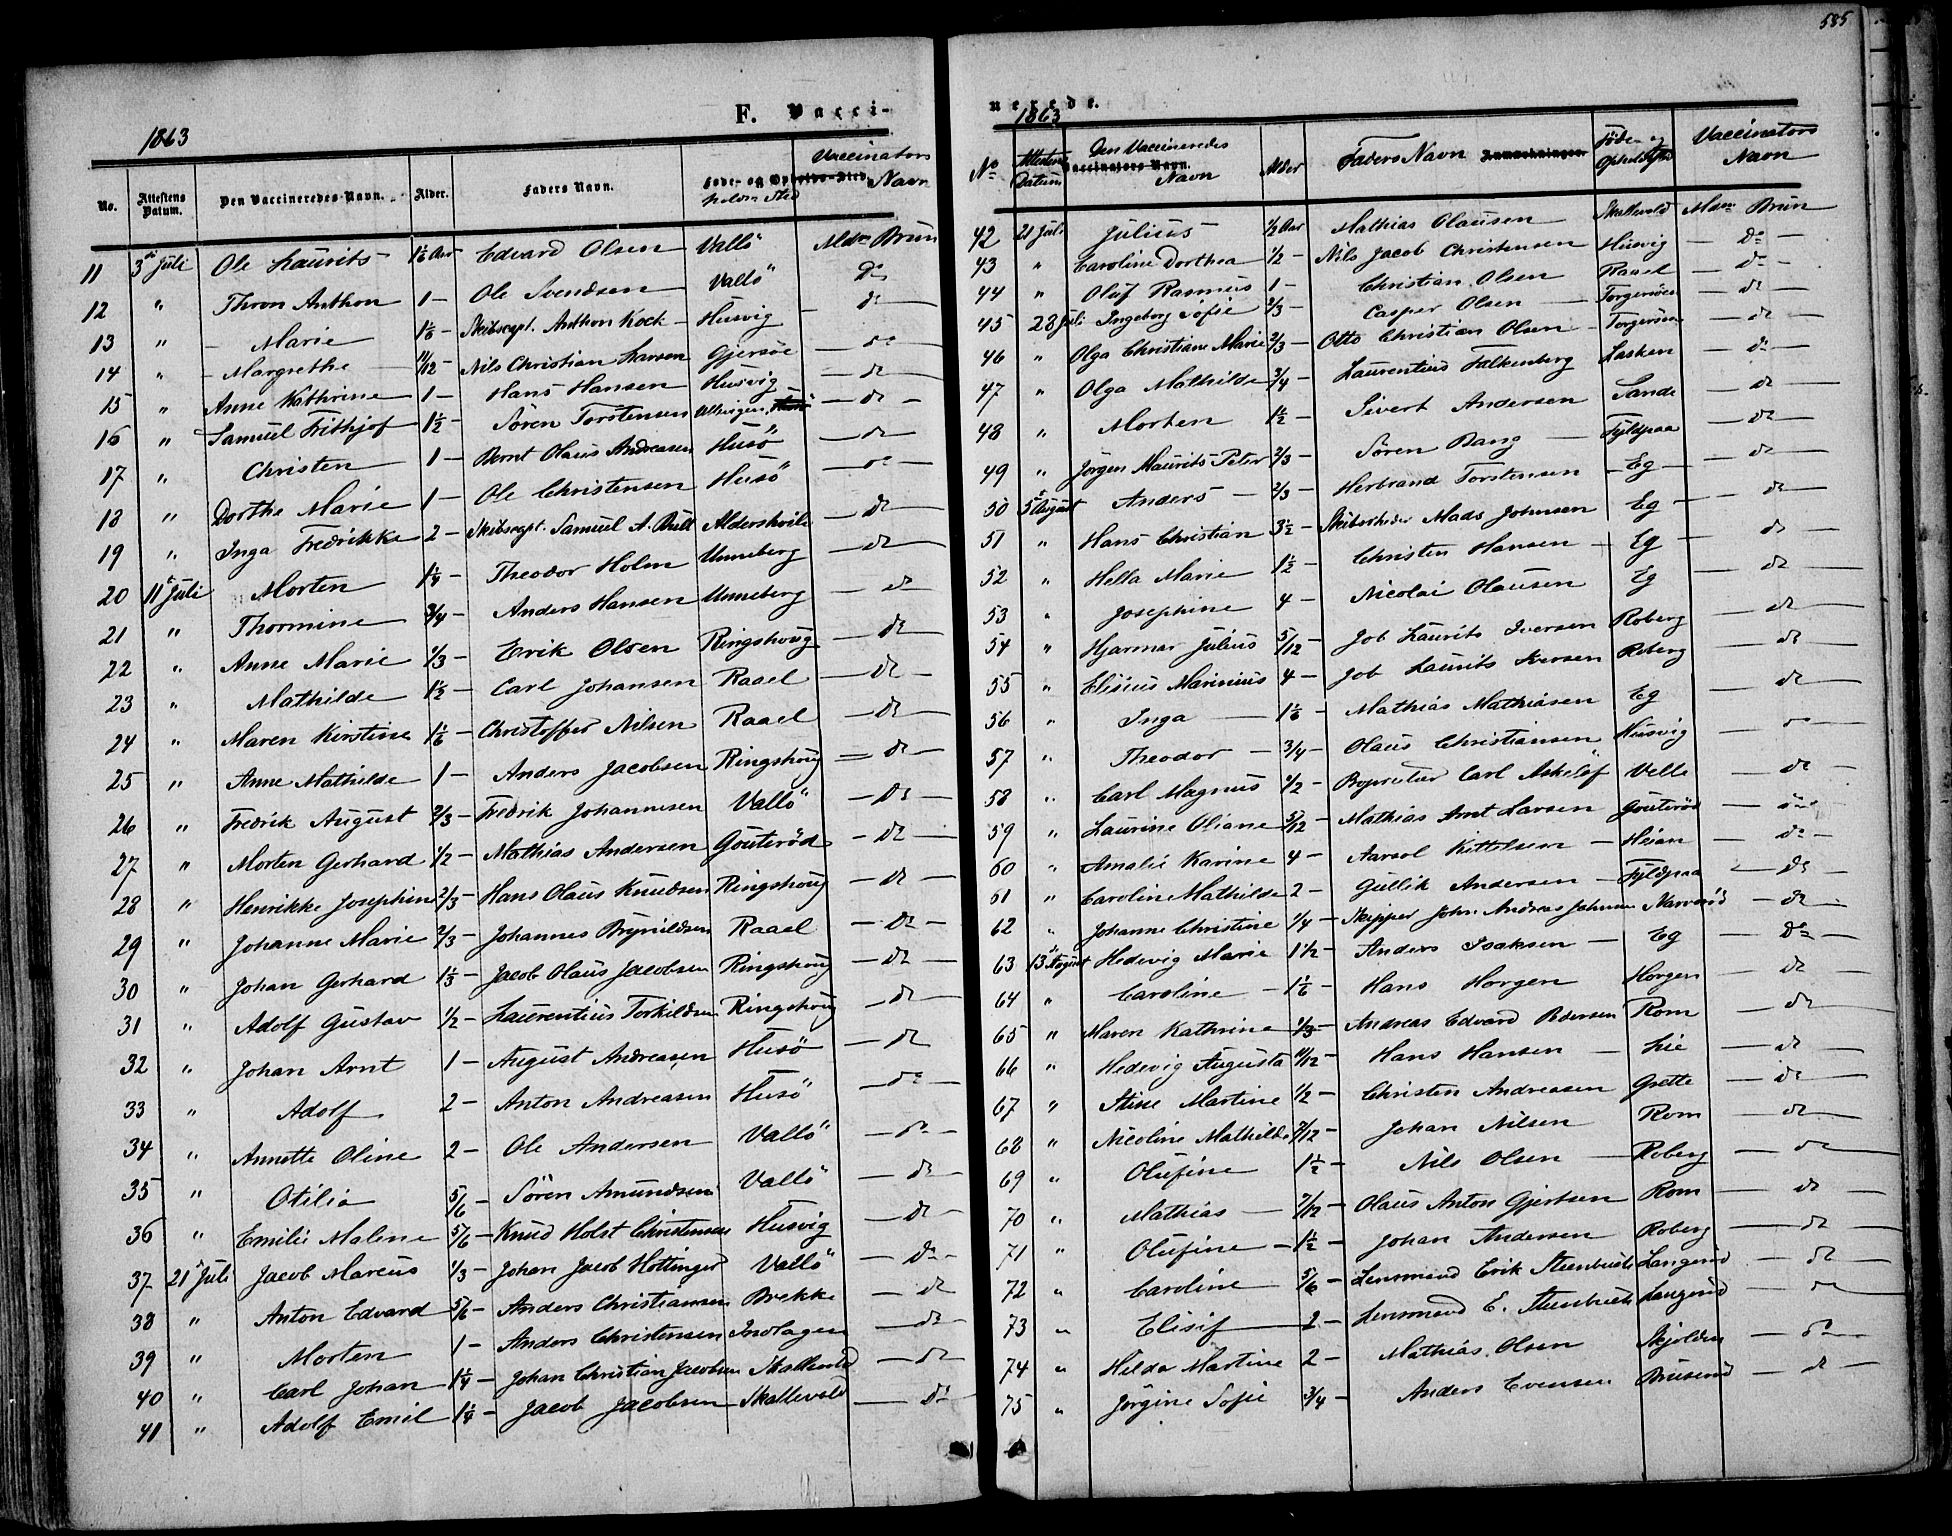 585
F. Vacci-
1863
No. Attestens Datum. Den Vaccineredes Navn. Alder. Faders Navn. Føde- og Opholds-Sted Vaccinators Navn
11 3d Juli Ole Laurits 1 1/6 Aar Edvard Olsen Vallö Brun
12 " Thron Anthon 1 - Ole Svendsen Vallö do
13 " Marie 1 1/6 - Skibscapt. Anthon Koch Husvig - do
14 " Margrethe 11/12 - Nils Christian Larsen Gjersøe - do
15 " Anne Kathrine 1 - Hans Hansen Husvig - do
16 " Samuel Frithjof 1 1/2 - Sören Torstensen - do -
17 " Christen 1 - Bernt Olaus Andreasen Husö - do
18 " Dorthe Marie 1 - Ole Christensen Husö - do
19 " Inga Fredrikke 2 - Skibscapt. Samuel A. Aldershvile - do
20 11d Juli Morten 1 1/4 - Theodor Holm Unneberg - do
21 " Thormine 3/4 - Anders Hansen Unneberg - do
22 " Anne Marie 1/3 - Erik Olsen Ringshoug - do
23 " Mathilde 1 1/2 - Carl Johansen Raael - do
24 " Maren Kirstine 1 1/6 - Christoffer Nilsen Raael - do
25 " Anne Mathilde 1 - Anders Jacobsen Ringshoug = do
26 " Fredrik August 2/3 - Fredrik Johannesen Vallö - do
27 " Morten Gerhard 1/2 - Mathias Andersen Gouteröd - do
28 " Henrikke Josephine 2/3 - Hans Olaus Knudsen Ringshoug - do
29 " Johanne Marie 2/3 - Johannes Brynildsen Raael - do
30 " Johan Gerhard 1 1/3 - Jacob Olaus Jacobsen Ringshoug - do
31 " Adolf Gustav 1/2 - Laurentius Torkildsen Ringshoug - do
32 " Johan Arnt 1 - August Andreasen Husö - do
33 " Adolf 2 - Anton Andreasen Husö - do
34 " Annette Oline 2 - Ole Andersen Vallö - do
35 " Otilia 5/6 - Sören Amundsen Vallö - do
36 " Emilie Malene 5/6 - Knud Holst Christensen Husvig - do
37 21d Juli Jacob Marcus 1/3 - Johan Jacob Hottinger Vallö - do
38 " Anton Edvard 5/6 - Anders Christiansen Brekke - do
39 " Morten 1 - Anders Christensen Indlagen - do
40 " Carl Johan 1 1/4 - Johan Christian Jacobsen Skallevold - do
41 " Adolf Emil 1 1/4 - Jacob Jacobsen Skallevold - do
nerede.
1863
No Attestens Datum Den Vaccineredes Navn Alder Faders Navn Føde- og Opholds Sted Vaccinators Navn
42 21 Juli Julius 1/2 Aar Mathias Olausen Skallevold Brun
43 " Caroline Dorthea 1/2 - Nils Jacob Christensen Husvig - do -
44 " Oluf Rasmus 1 - Christian Olsen Raael - do -
45 28 Juli Ingeborg Sofie 2/3 - Casper Olsen Torgersøen - do -
46 " Olga Christiane Marie 2/3 - Otto Christian Olsen Torgersøen - do
47 " Olga Mathilde 3/4 - Laurentius Falkenberg Lasken - do
48 " Morten 1 1/2 - Sivert Andersen Sande - do
49 " Jörgen Maurits Peter 2/3 - Sören Bang Fyldpaa - do
50 5d August Anders 2/3 - Herbrand Torstensen Eg - do
51 " Hans Christian 3 1/2 - Mads Johnsen Eg - do
52 " Hella Marie 1 1/2 - Christen Hansen Eg - do
53 " Josephine 4 - Nicolai Olausen Eg - do
54 " Hjarmar Julius 5/12 - Job Laurits Iversen Roberg - do
55 " Elisius Marinius 4 - Job Laurits Iversen Roberg - do
56 " Inga 1 1/6 - Mathias Mathiasen Eg - do
57 " Theodor 3/4 - Olaus Christiansen Husvig - do
58 " Carl Magnus 1/2 - Proprietær Carl Askelöf Velle - do
59 " Laurine Oliane 5/12 - Mathias Arnt Larsen Gouteröd - do
60 " Amalie Karine 4 - Kittelsen Heian - do
61 " Caroline Mathilde 2 - Gullik Andersen Fyldpaa - do
62 " Johanne Christine 1/4 - Skipper John Andreas Johnsen Narveröd - do
63 13d August Hedevig Marie 1 1/2 - Anders Isaksen Eg - do
64 " Caroline 1 1/6 - Hans Horgen Horgen - do
65 " Maren Kathrine 1/3 - Andreas Edvard Pedersen Rom - do
66 " Hedevig Augusta 11/12 - Hans Hansen Lie - do
67 " Stine Martine 1/2 - Christen Andreasen Grette - do
68 " Nicoline Mathilde 7/12 - Johan Nilsen Rom - do
69 " Olufine 1 1/2 - Nils Olsen Roberg - do
70 " Mathias 7/12 - Olaus Anton Gjertsen Rom - do
71 " Olufine 1 1/2 - Johan Andersen Roberg - do
72 " Caroline 5/6 - Lensmand Erik Steenbuck Langerud - do
73 " Elisif 2 - Lensmand E. Steenbuck Langerud - do
74 " Hilda Martine 2 - Mathias Olsen Skjolden - do
75 " Jörgine Sofie 3/4 - Anders Evensen Bruserud - do